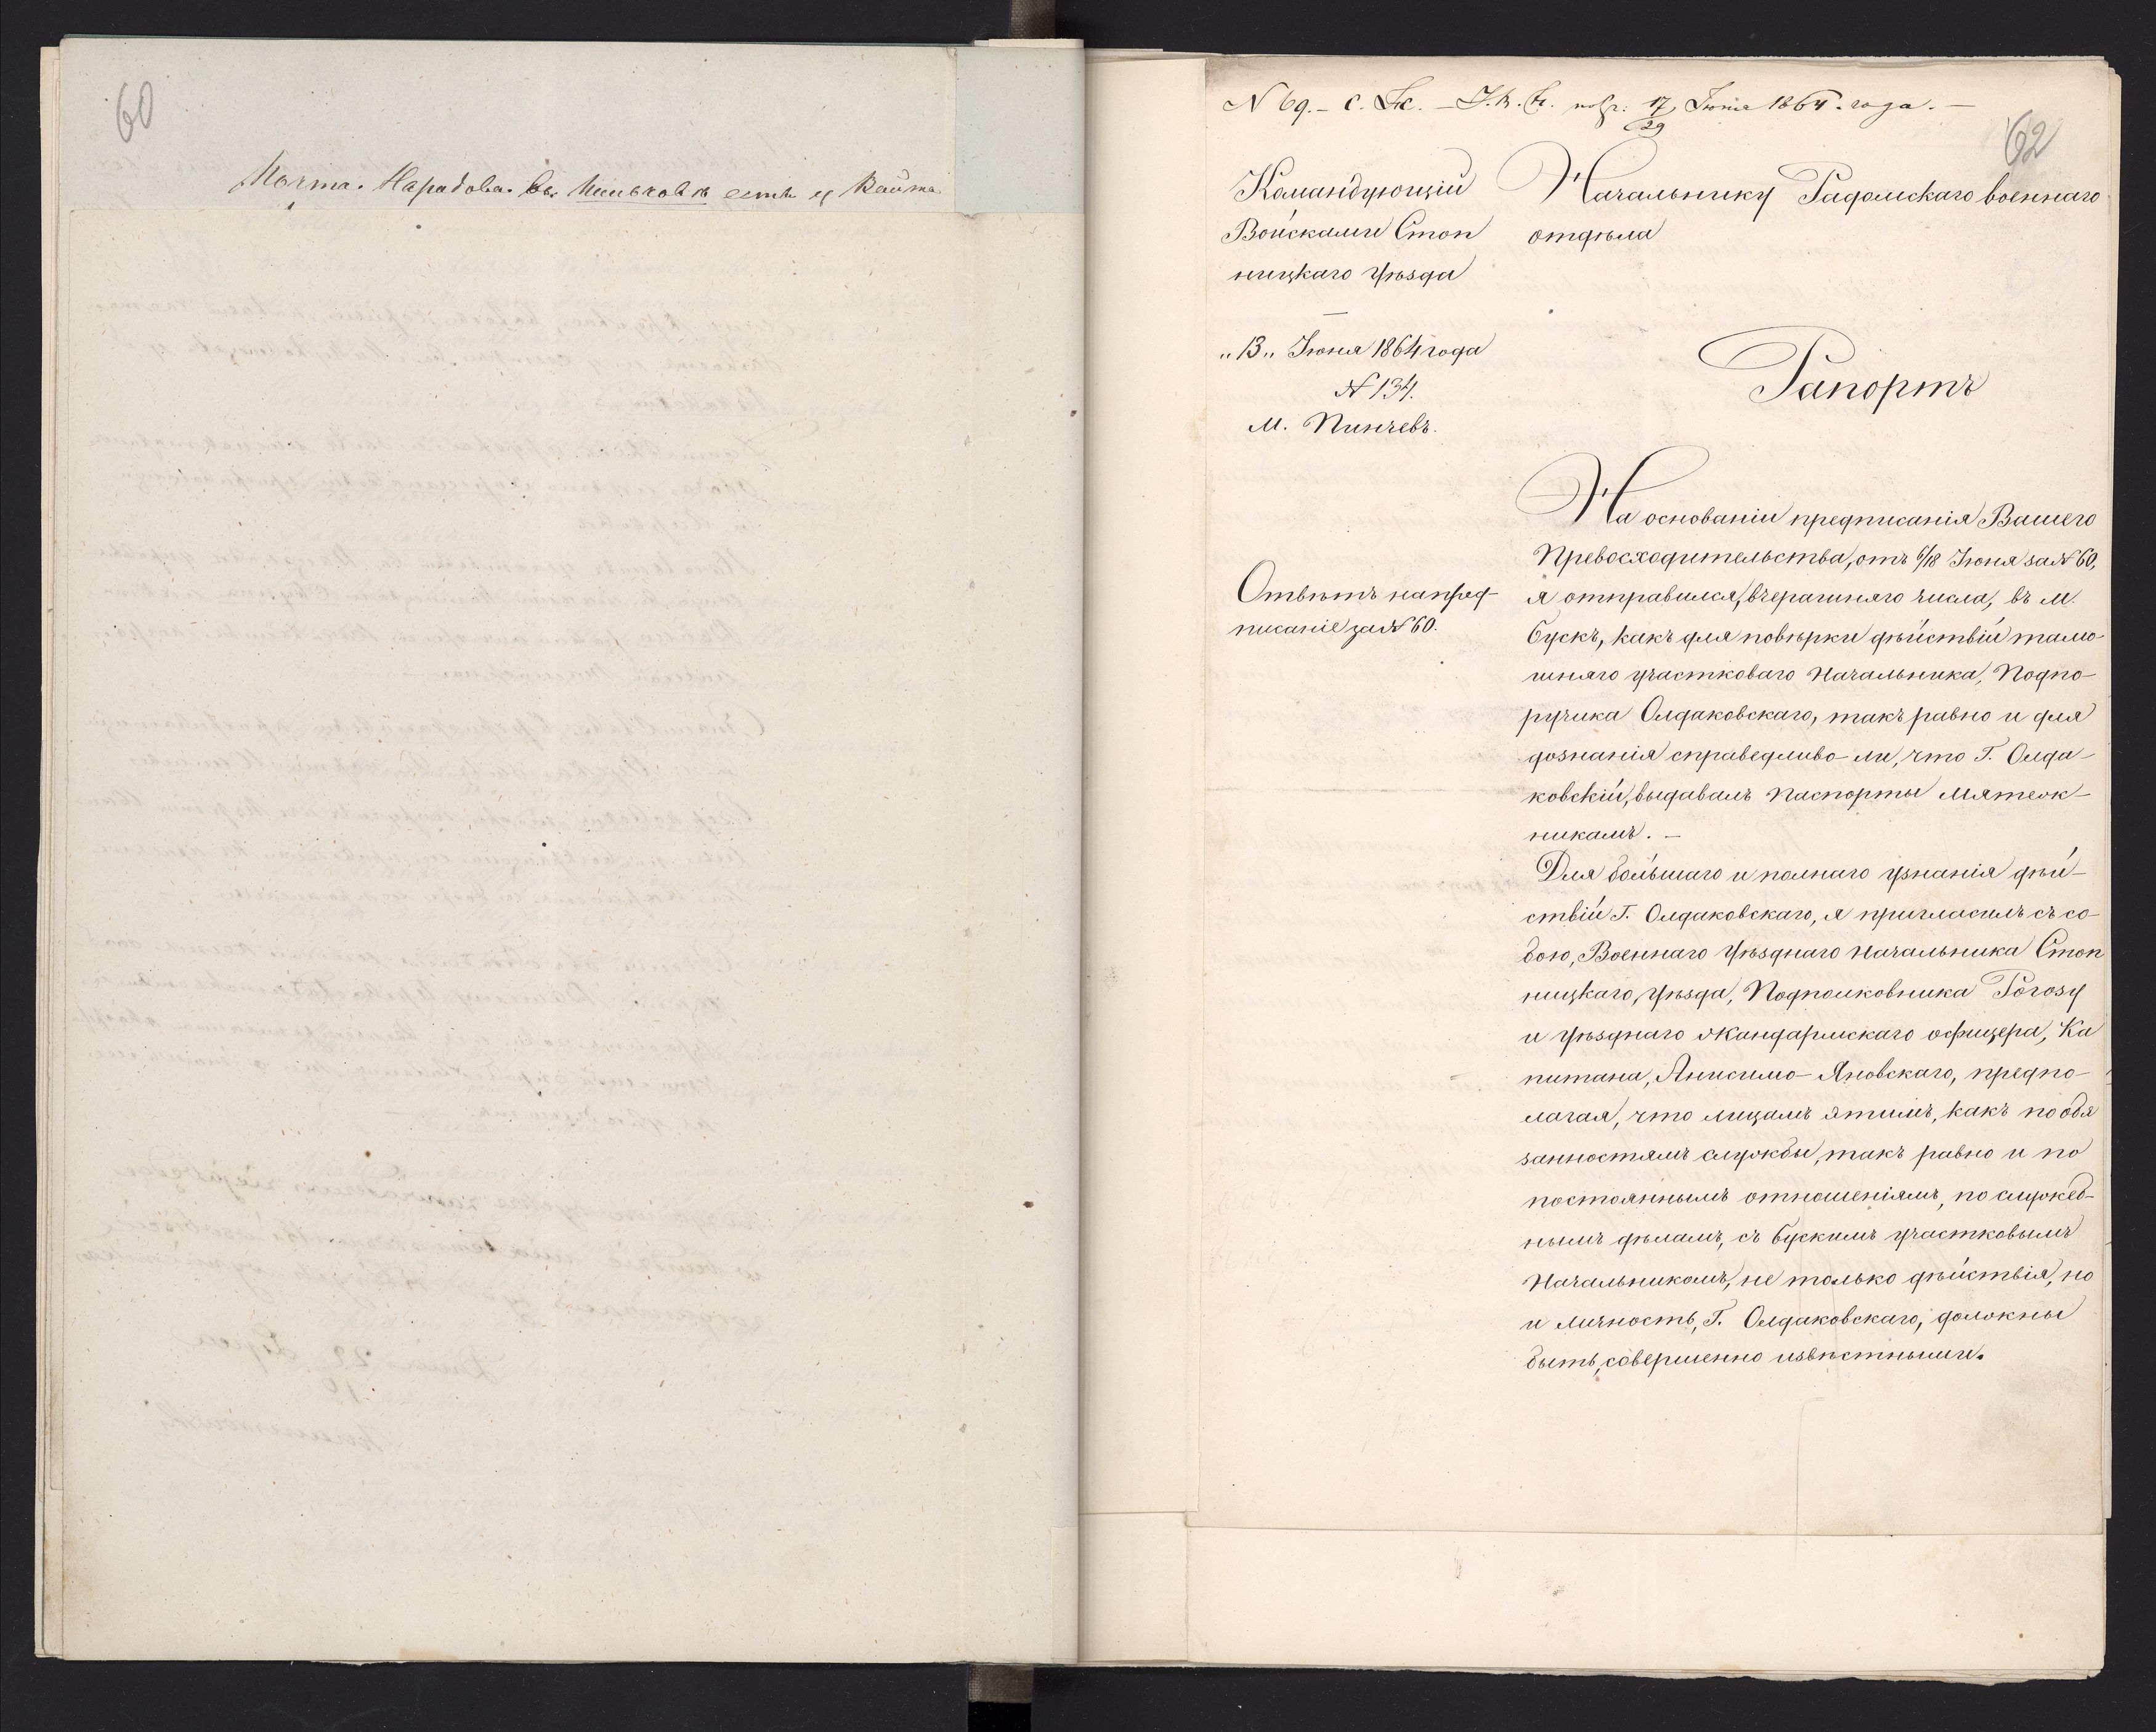 60
Почта. Нарадова. въ есть у Вайта
N 69. – С. – получ: 17/29 Іюня 1864. года. –
62
Командующій
Войсками Стоп
ницкаго Уѣзда
„13„ Іюня 1864 года
№ 134.
М. Пинчевъ.
Отвѣтъ на пред-
писаніе за № 60.
Начальнику Радомскаго военнаго
отдѣла
Рапортъ
На основаніи предписанія Вашего
Превосходительства, отъ 6/18 Іюня за № 60,
я отправился, вчерашняго числа, въ м.
Бускъ, какъ для повѣрки дѣйствій тамо-
шняго участковаго Начальника, Подпо-
ручика Олдаковскаго, такъ равно и для
дознанія справедливо-ли, что Г. Олда-
ковскій, выдавалъ паспорты мятеж-
никамъ. –
Для бо́льшаго и полнаго узнанія дѣй-
ствій Г. Олдаковскаго, я пригласилъ съ со-
бою, Военнаго Уѣзднаго Начальника Стоп
ницкаго, Уѣзда, Подполковника Рогозу
и Уѣзднаго жандармскаго офицера, Ка
питана, Анисимо-Яновскаго, предпо-
лагая, что лицамъ этимъ, какъ по обя
занностямъ службы, такъ равно и по
постояннымъ отношеніямъ, по служеб-
нымъ дѣламъ, съ Бускимъ участковымъ
Начальникомъ, не только дѣйствія, но
и личность, Г. Олдаковскаго, должны
быть, совершенно извѣстными.